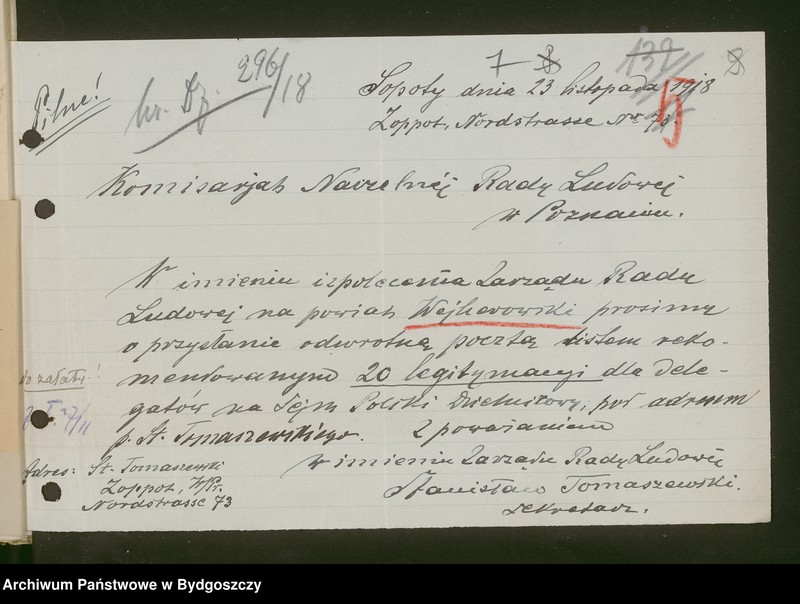 Pilne!
nr. Dz. 296/18
7 8
132
8
5
Sopoty dnia 23 listopada 1918
Zoppot, Nordstrasse Nr 73.
Komisarjat Naczelnéj Rady Ludowej
w Poznaniu.
W imieniu i z polecenia Zarządu Rady
Ludowej na powiat Wejherowski prosimy
o przysłanie odwrotną pocztą listem reko-
mendowanym 20 legitymacyi dla dele-
gatów na Sejm Polski Dzielnicowy, pod adresem
p. St. Tomaszewskiego. Z poważaniem
w imieniu Zarządu Rady Ludowéj
Stanisław Tomaszewski.
sekretarz.
załatw.!
Adres: St. Tomaszewski
Zoppot, W/Pr.
Nordstrasse 73
Archiwum Państwowe w Bydgoszczy